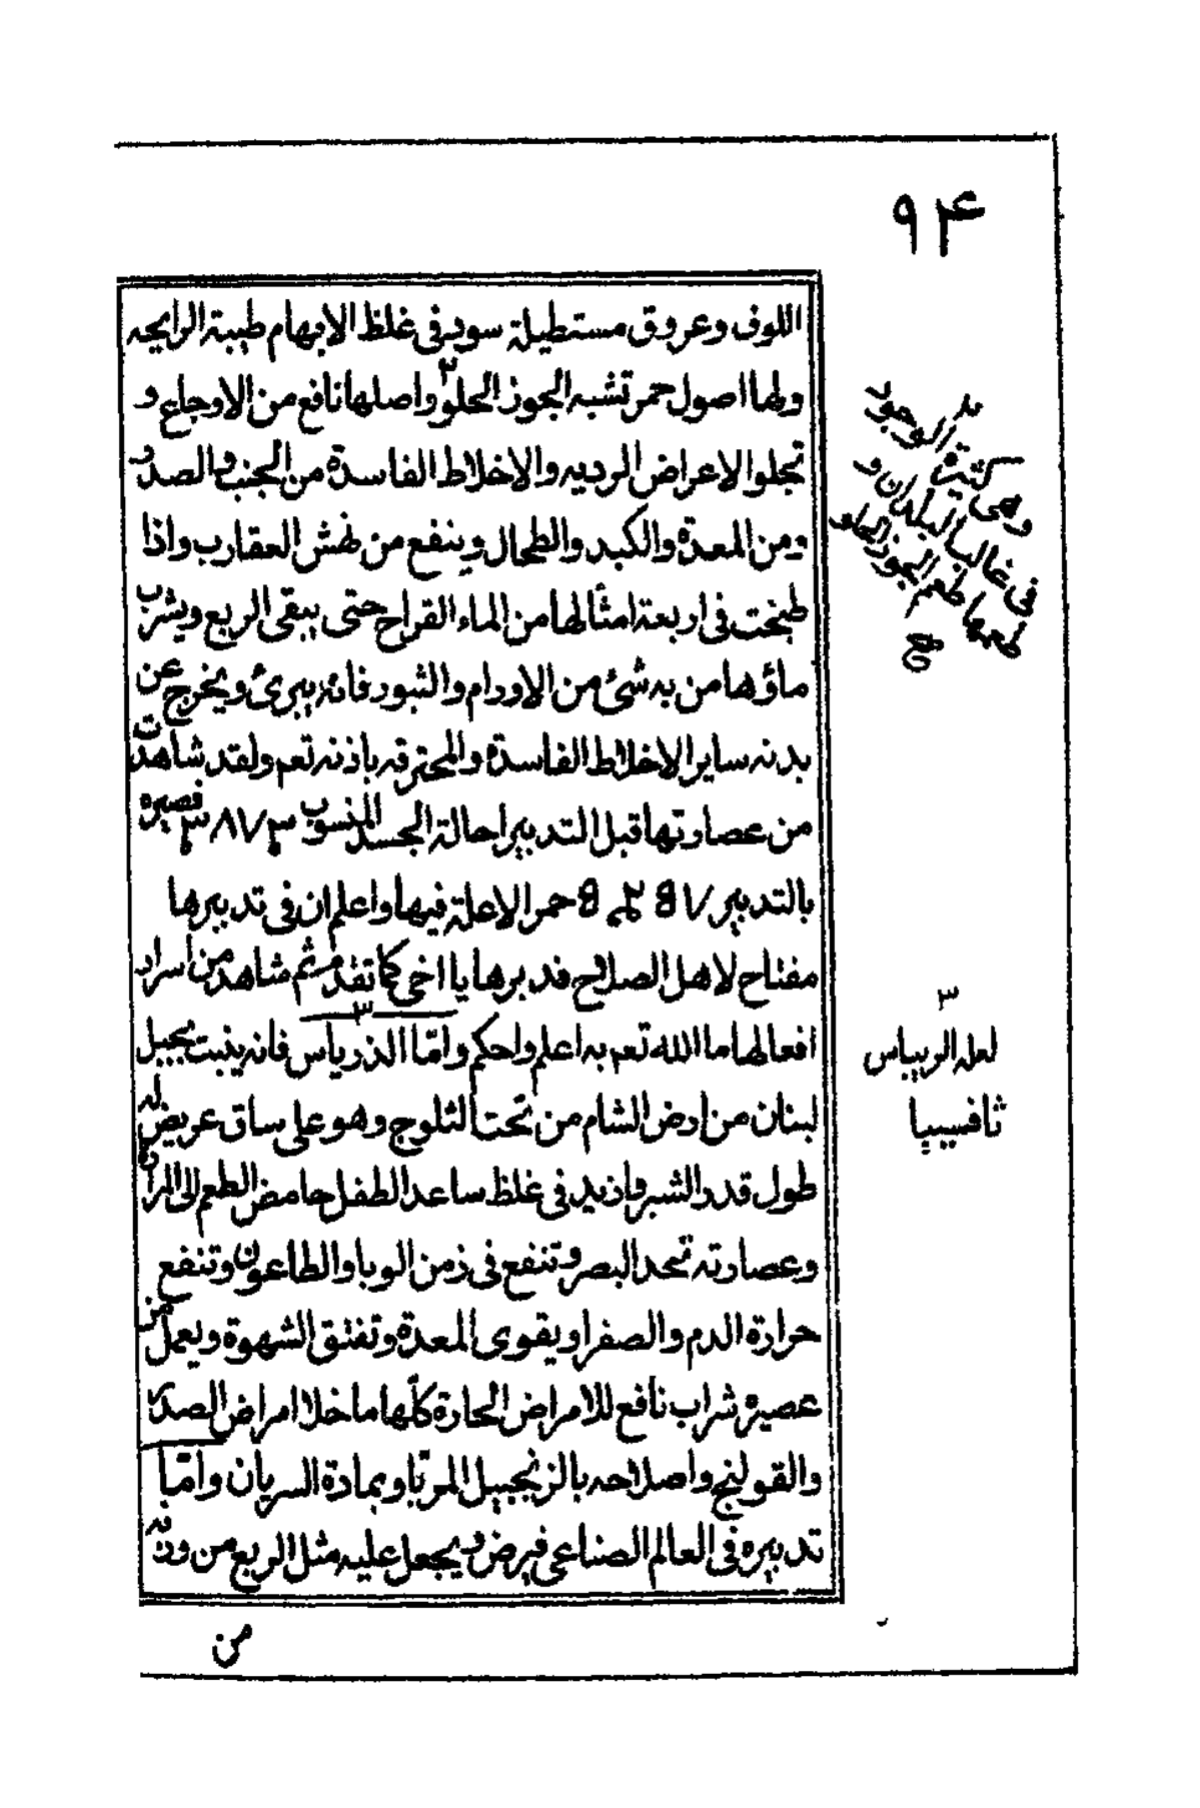 ۹۴
اللوف وعروق مستطيلة سود في غلظ الابهام طيبة الرايحه
ولها اصول حمر تشبه الجوز الحلو۲ واصلها نافع من الاوجاع و
تجلو الاعراض الرديه والاخلاط الفاسدة من الجنب والصدر
ومن المعدة والكبد والطحال وينفع من نهش العقارب واذا
طبخت في اربعة امثالها من الماء القراح حتى يبقى الربع ويشرب
ماؤها من به شئ من الاورام والثبور فانه يبرئ ويخرج عن
بدنه ساير الاخلاط الفاسدة والمحترقه باذنه تعم ولقد شاهدت
من عصارتها قبل التدبير احالة الجسد المنسوب قصيره
بالتدبير حمر الاعلة فيها واعلم ان في تدبيرها
مفتاح لاهل الصلاح فدبرها يا اخي كما تقدم ثم شاهد من اسرار
افعالها ما الله تعم به اعلم واحكم وامّا الذرياس۳ فانه ينبت بجبل
لبنان من ارض الشام من تحت الثلوج وهو على ساق عريض له
طول قدر الشبر وازيد في غلظ ساعد الطفل حامض الطعم الى المرارة
وعصارته تحد البصر وتنفع في زمن الوبا والطاعون وتنفع
حرارة الدم والصفرا ويقوى المعدة وتفتق الشهوة ويعمل من
عصيره شراب نافع للامراض الحارة كلّها ما خلا امراض الصدر
والقولنج واصلاحه بالزنجبيل المربّا وبمادة السريان وامّا
تدبيره في العالم الصناعي فيرض ويجعل عليه مثل الربع من وزنه
من
وهي كثيرة الوجود
في غالب البلدان و
طعمها طعم الجوز الحلو
صح
۳
لعله الريباس
ثافسيا